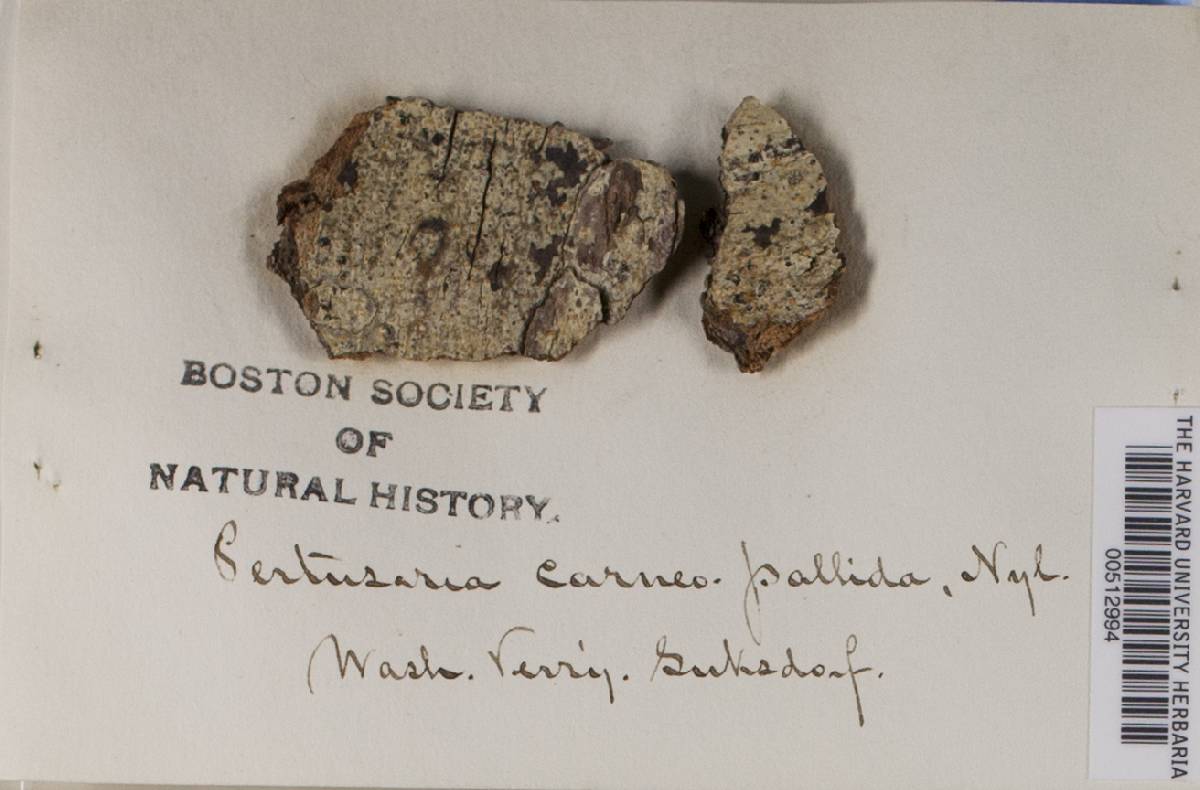 BOSTON SOCIETY
OF
NATURAL HISTORY.
Pertusaria carneo-pallida, Nyl.
Wash. Terr'y. Suksdorf.
THE HARVARD UNIVERSITY HERBARIA
00512994